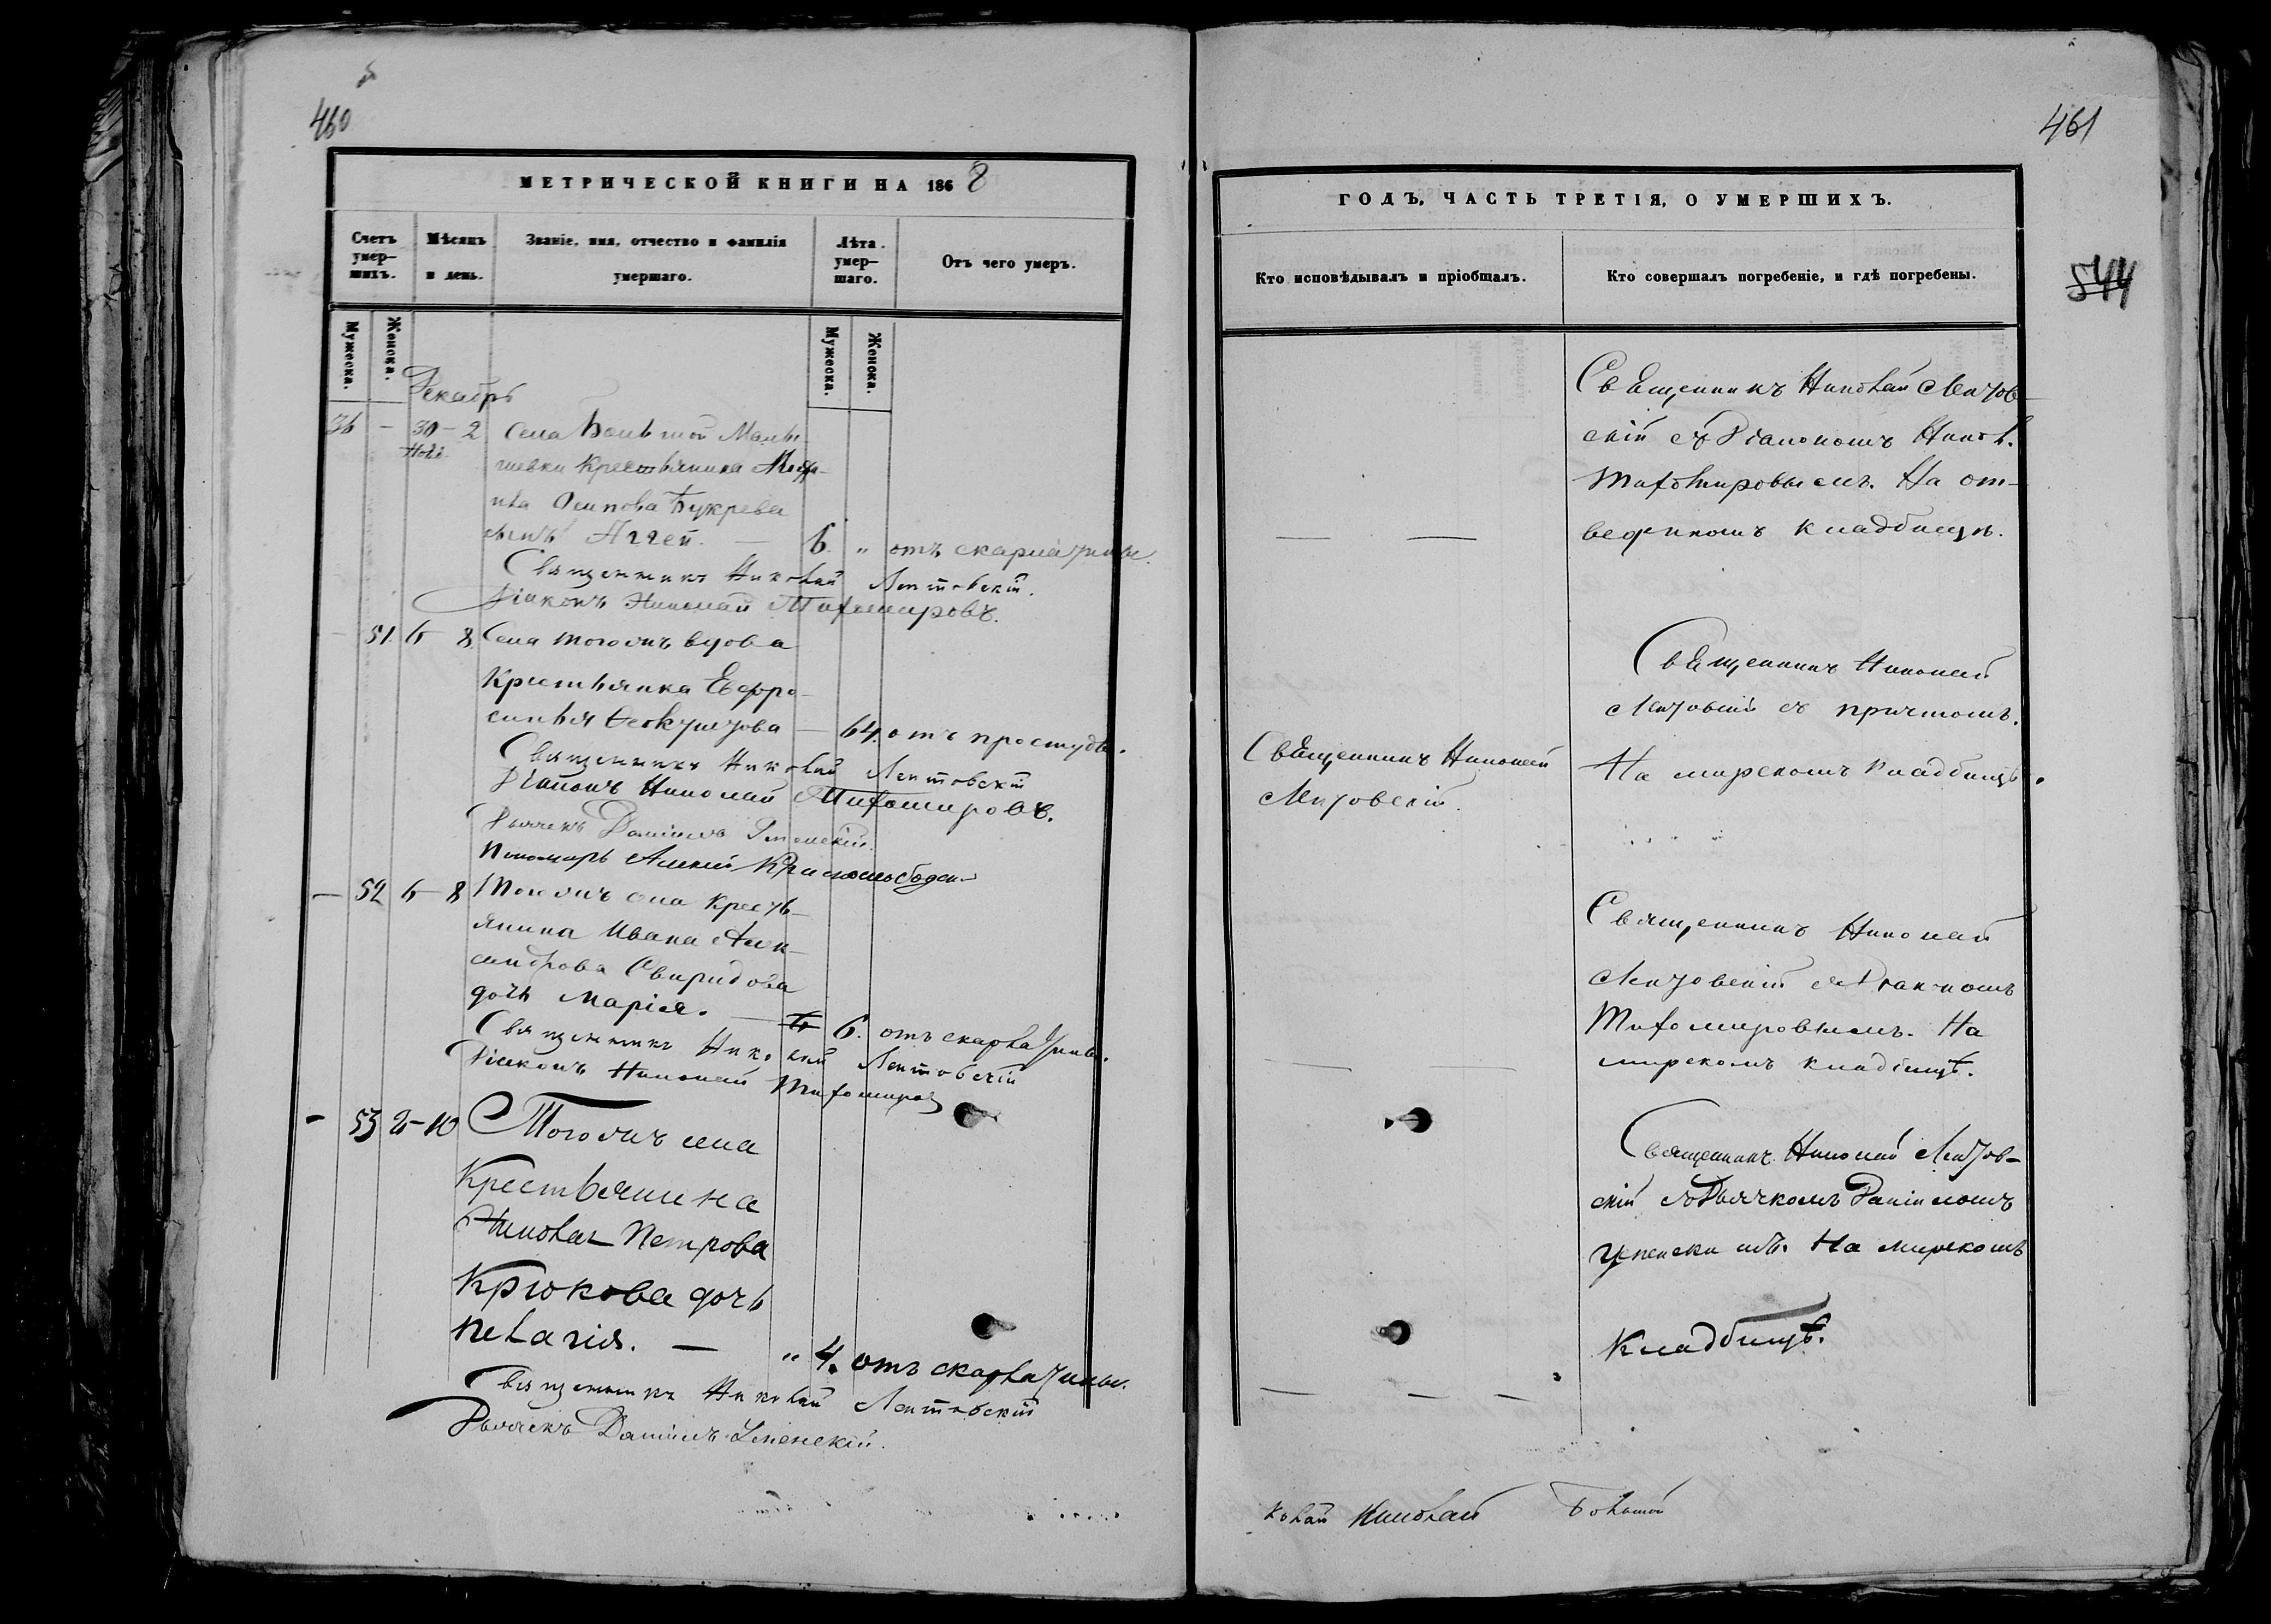 460
МЕТРИЧЕСКОЙ КНИГИ НА 1868
Счетъ умер-шихъ.
Мѣсяцъ и день.
Званіе, имя, отчество и фамилія умершаго.
Лѣта умер-шаго.
Отъ чего умеръ.
Мужеска.
Женска.
Мужеска.
Женска.
Декабрь
36 — 30 — 2 Села Большой Малы-
Нояб.
шевки Крестьянина
Осипова Букрева
сынъ Аггей. — 6. „ отъ скарлатины.
Священникъ Николай Лентовскій.
Діаконъ Николай Тихомировъ.
— 51. 6 8 Села тогожъ вдова
Крестьянка Евфро-
синья — 64. отъ простуды.
Священникъ Николай Лентовскій
Діаконъ Николай Тихомировъ.
Дьячекъ Даніилъ Успенскій.
Пономарь Алексій
— 52 6 — 8 Тогожъ села Кресть-
янина Ивана Алек-
сандрова Свиридова
дочь Марія. — 6. отъ скарлатины.
Священникъ Николай Лентовскій
Діаконъ Николай Тихомировъ
— 53 2 — 10 Тогожъ села
Крестьянина
Николая Петрова
Крюкова дочь
Пелагія. — „ 4. отъ скарлатины.
Священникъ Николай Лентовскій
Дьячекъ Даніилъ Успенскій.
461
544
ГОДЪ, ЧАСТЬ ТРЕТІЯ, О УМЕРШИХЪ.
Кто исповѣдывалъ и пріобщалъ.
Кто совершалъ погребеніе, и гдѣ погребены.
Священникъ Николай Лентов-
скій съ Діакономъ Никол.
Тихомировымъ. На от-
веденомъ кладбищѣ.
Священникъ Николай
Лентовскій съ причтомъ.
Священникъ Николай На мирскомъ кладбищѣ.
Лентовскій.
Священникъ Николай
Лентовскій съ Діакономъ
Тихомировымъ. На
мирскомъ кладбищѣ.
Священникъ Николай Лентов-
скій съ Дьячкомъ Даніиломъ
Успенскимъ. На мирскомъ
Кладбищѣ.
колай Николай Большой